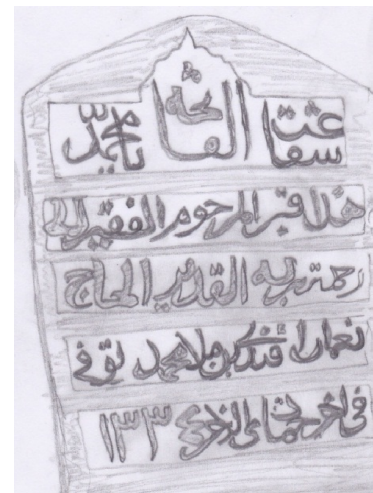 شفاعت الفاتحة يا محمد
هذا قبر المرحوم الفقير الى
رحمت ربه القدير الحاج
نعمان أفندي بن ملا محمد توفى
فى اخر جمادى الاخرى ١٣٣